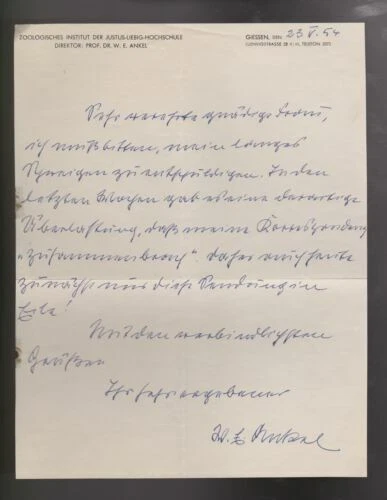 ZOOLOGISCHES INSTITUT DER JUSTUS-LIEBIG-HOCHSCHULE
DIREKTOR: PROF. DR. W. E. ANKEL
GIESSEN, DEN 23. V. 54
LUDWIGSTRASSE 23 II/III, TELEFON
Sehr verehrte gnädige Frau,
ich muß bitten, mein langes
Schweigen zu entschuldigen. In den
letzten Wochen gab es eine derartige
Überlastung, daß meine Korrespondenz
„zusammenbrach". Daher auch heute
zunächst nur diese Sendung in
Eile!
Mit den verbindlichsten
Grüßen
Ihr sehr ergebener
W. E. Ankel